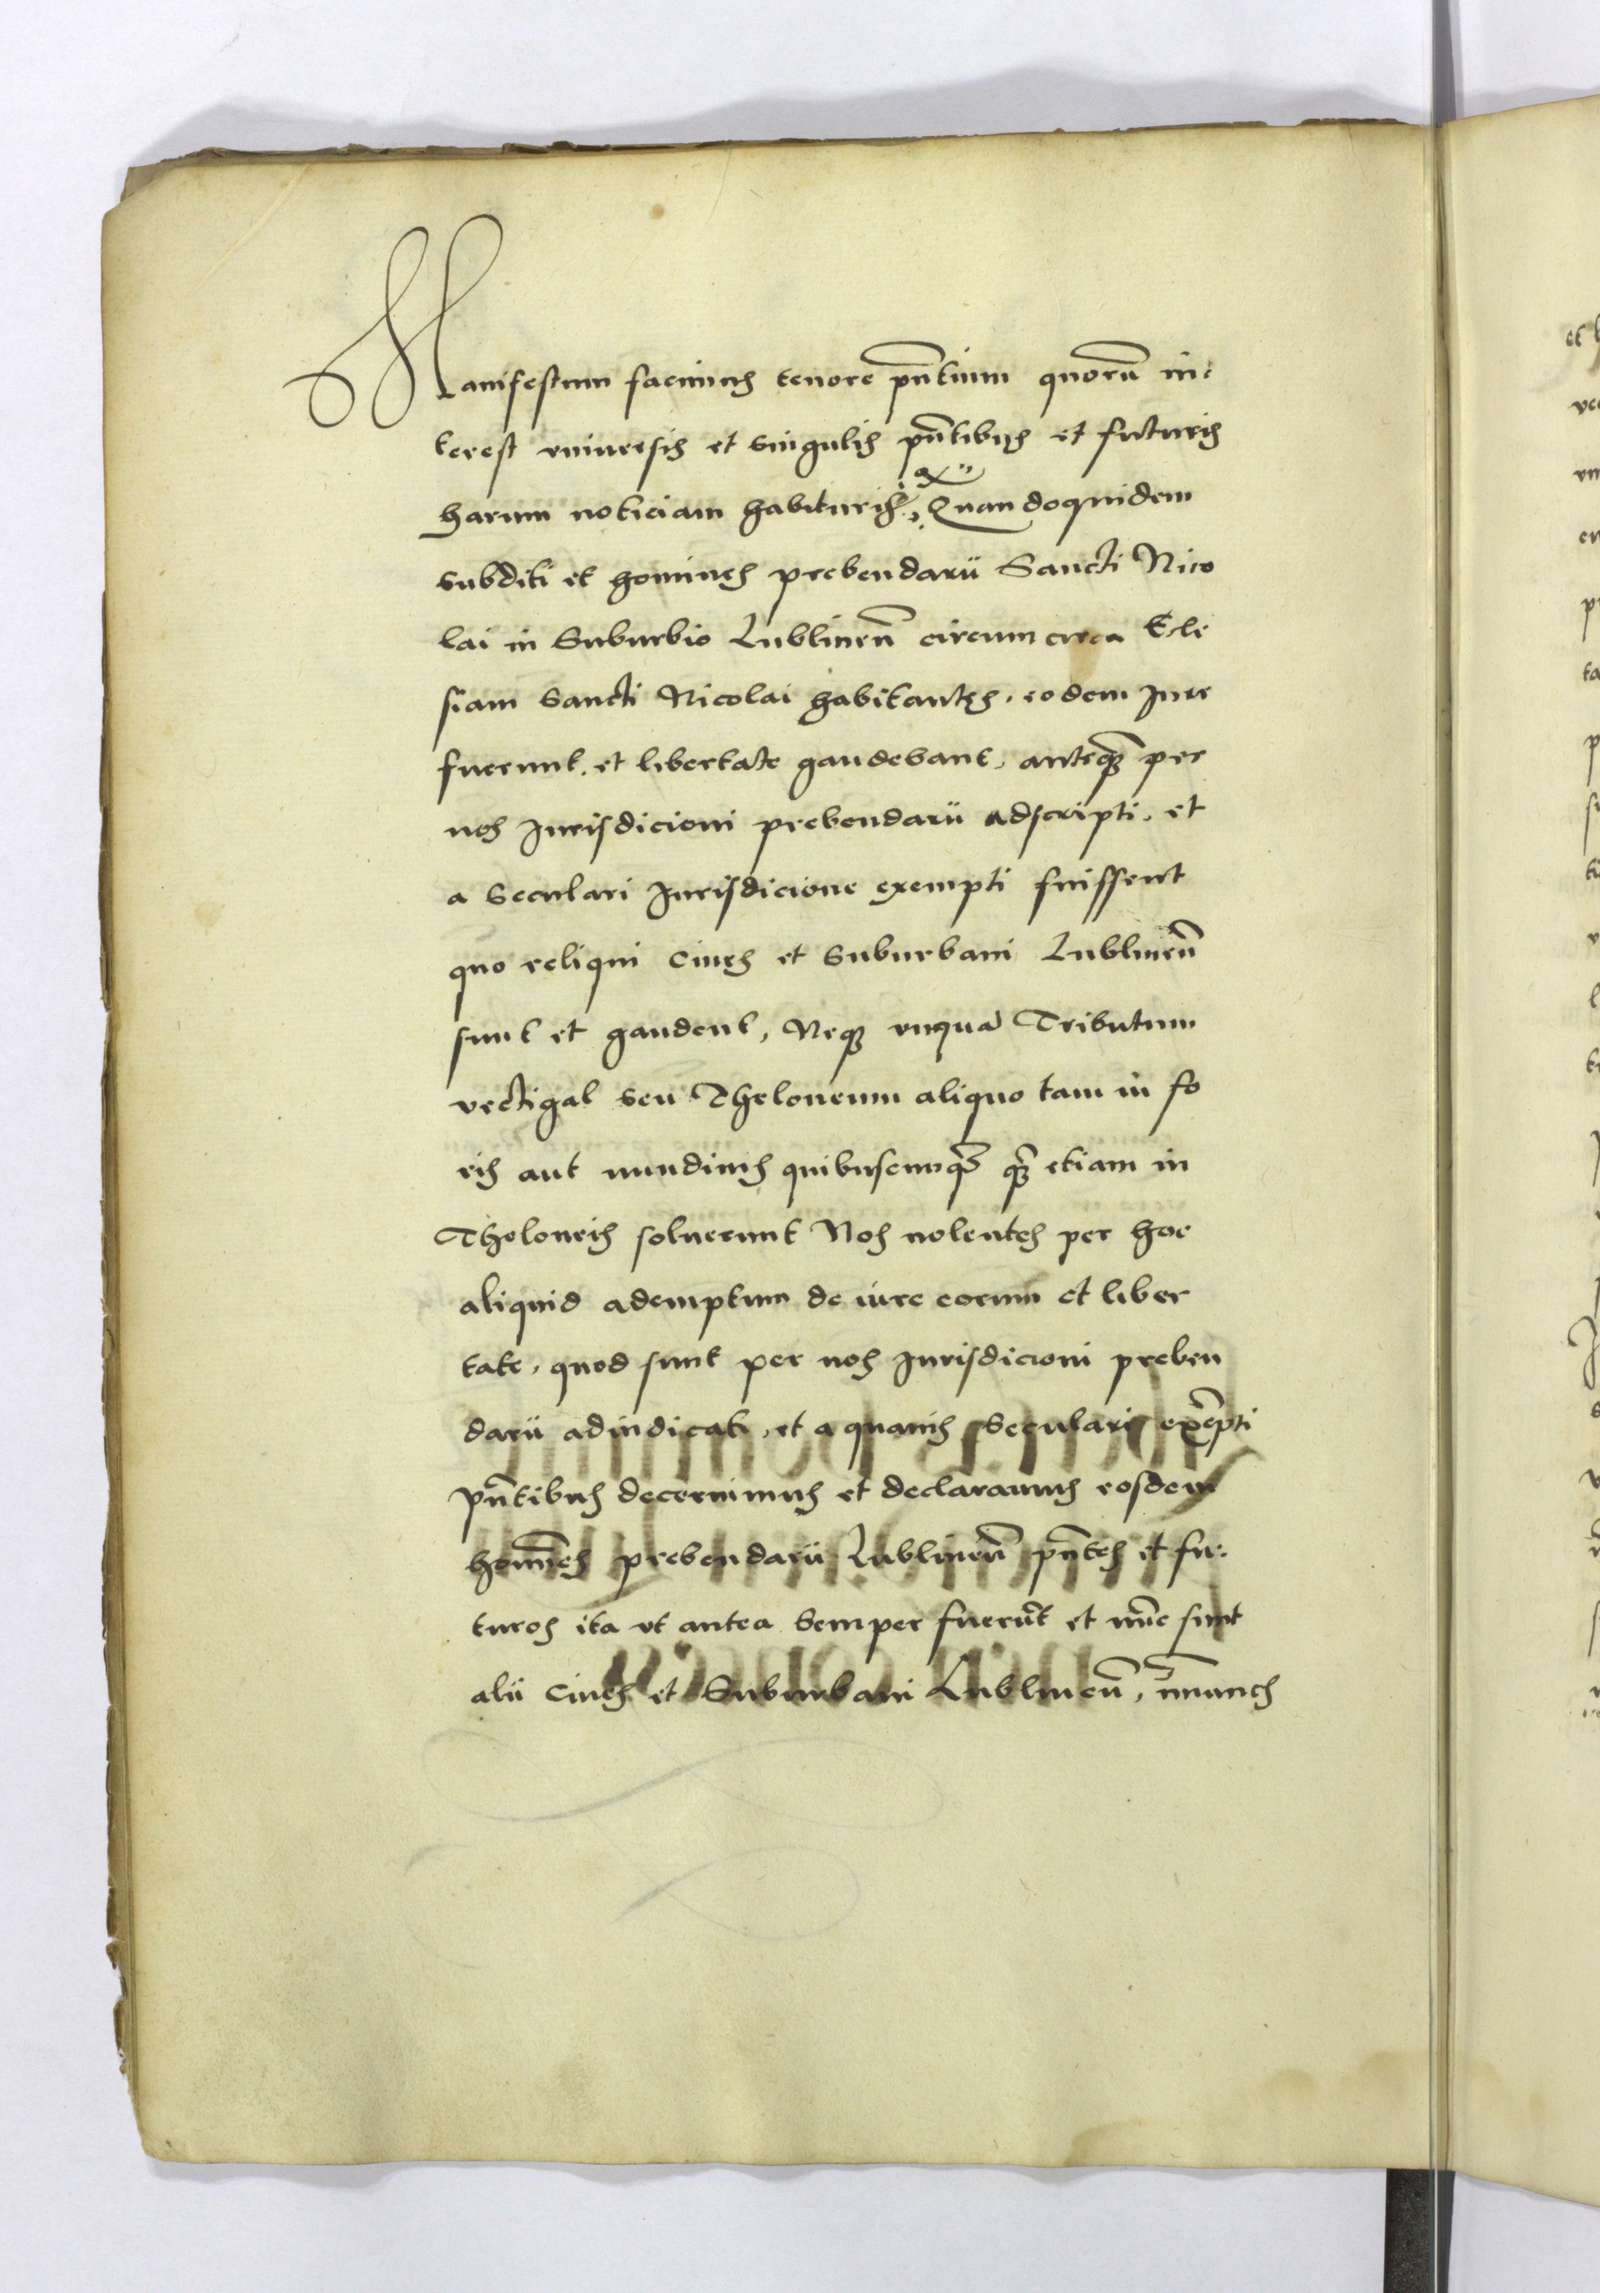 Manifestum facimus tenore pñtium quorũ in⸗
terest vniuersis et singulis pñtibus et futuris
harum noticiam habituris, Quandoquidem
subditi et homines prebendarũ Sancti Nico
lai in Suburbio Lublineñ circumcirca Ecle
siam Sancti Nicolai habitantes, eodem Iure
fuerunt, et libertate gaudebant, anteq̃ per
nos Iurisdicioni prebendarũ adscripti, et
a Seculari Iurisdicione exempti fuissent
quo reliqui Ciues et Suburbani Lublineñ
sunt et gaudent, Neq; vnquã Tributum
vectigal seu Theloneum aliquo tam in fo
ris aut nundinis quibuscunq; q̃ etiam in
Theloneis soluerunt Nos nolentes per hoc
aliquid ademptum de iure eorum et liber
tate, quod sunt per nos Iurisdicioni preben
darũ adiudicati, et a quauis Seculari exẽpti
pñtibus decernimus et declaramus eosdem
homĩes prebendarũ Lublineñ pñtes et fu⸗
turos ita vt antea Semper fuerũt et nũc sunt
alii Ciues et Suburbani Lublineñ,